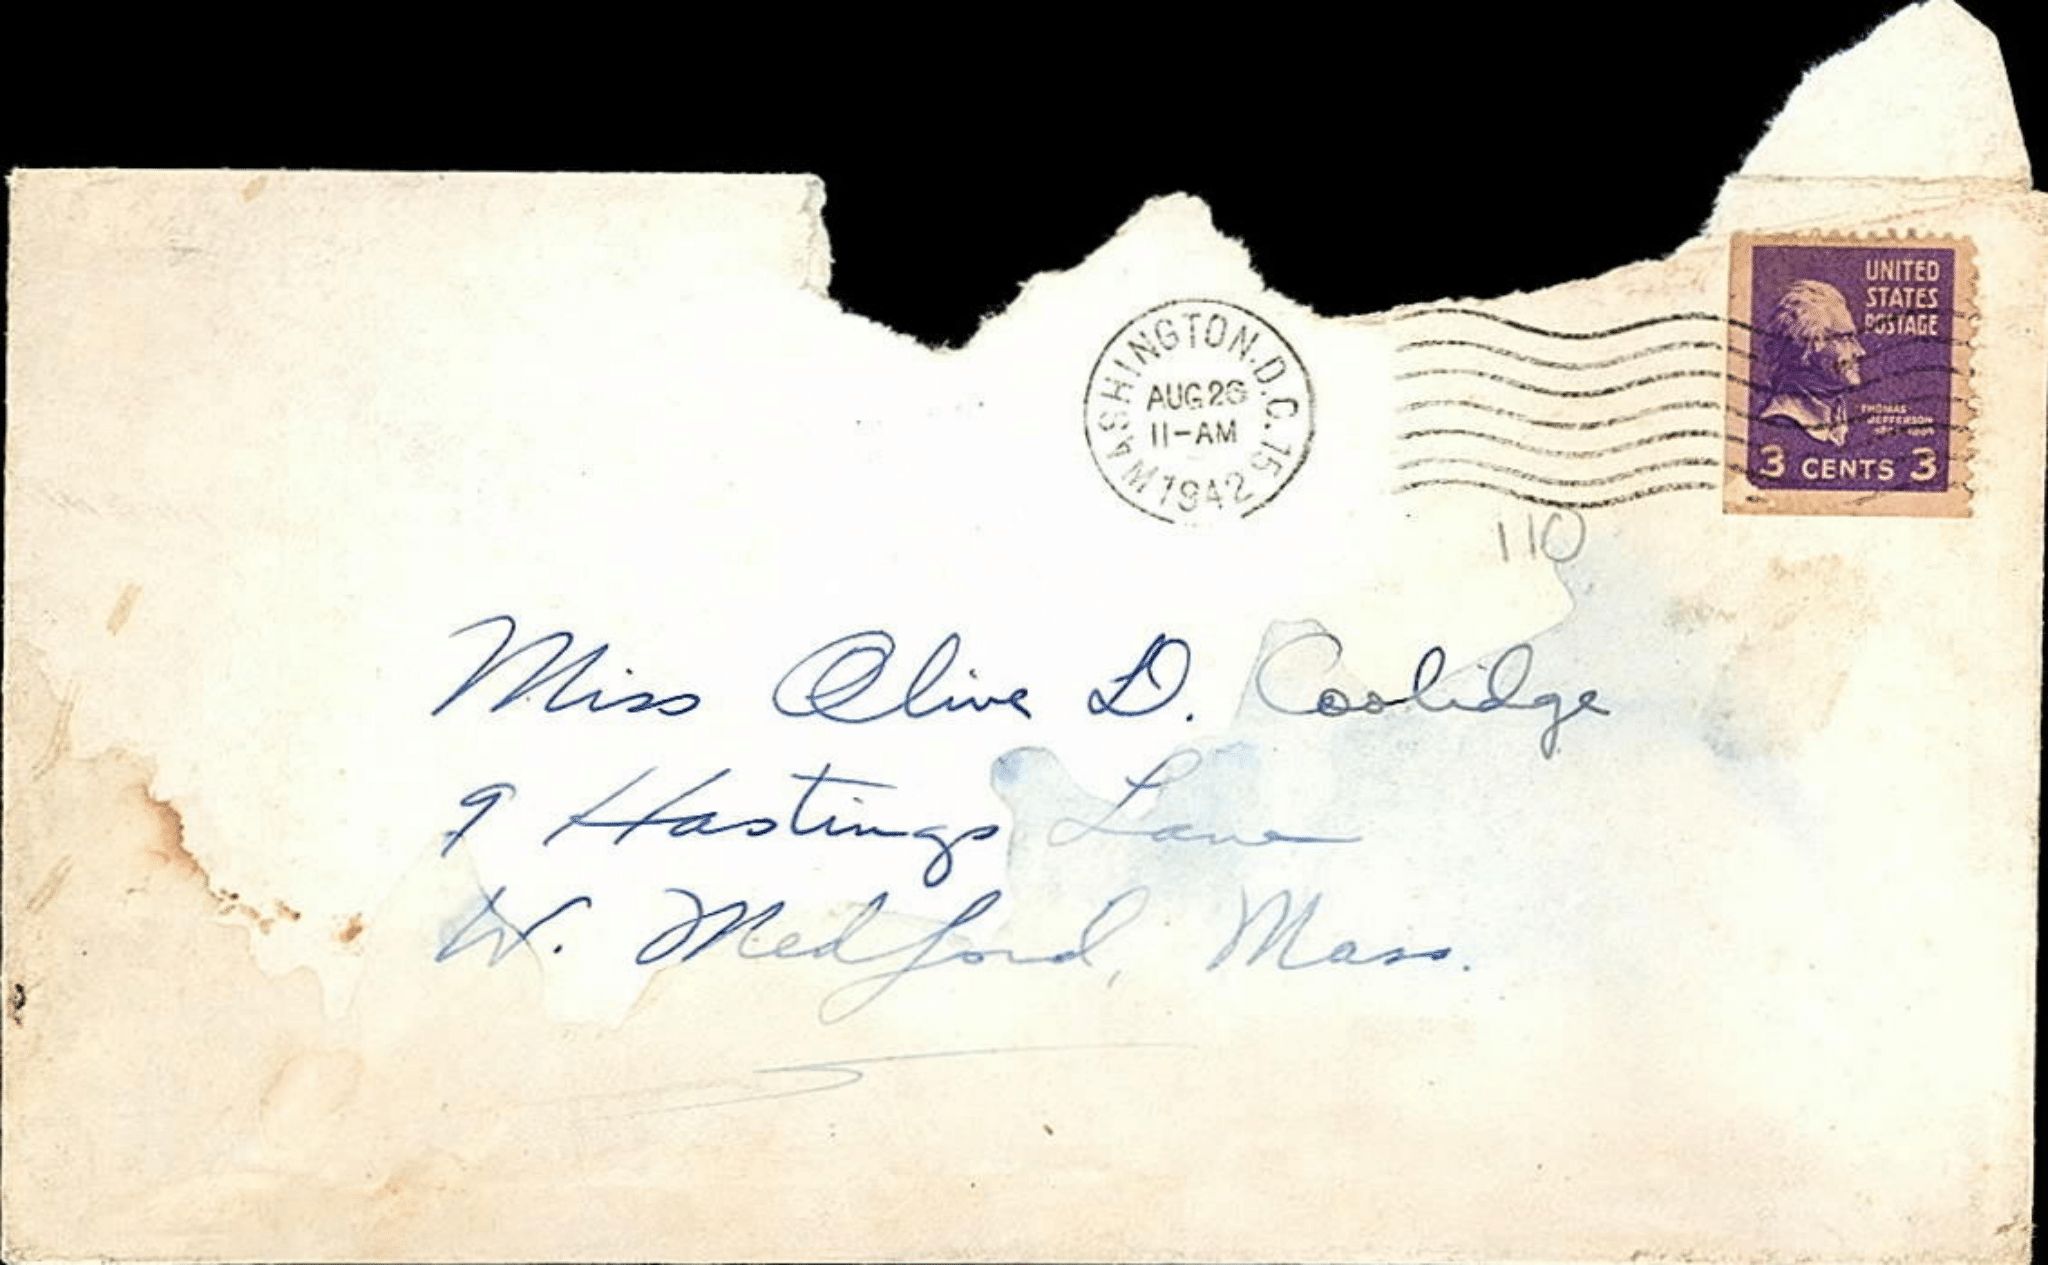 WASHINGTON, D.C. 15
AUG 26
11-AM
1942
UNITED
STATES
POSTAGE
THOMAS
JEFFERSON
3 CENTS 3
110
Miss Olive D. Coolidge
9 Hastings Lane
W. Medford, Mass.